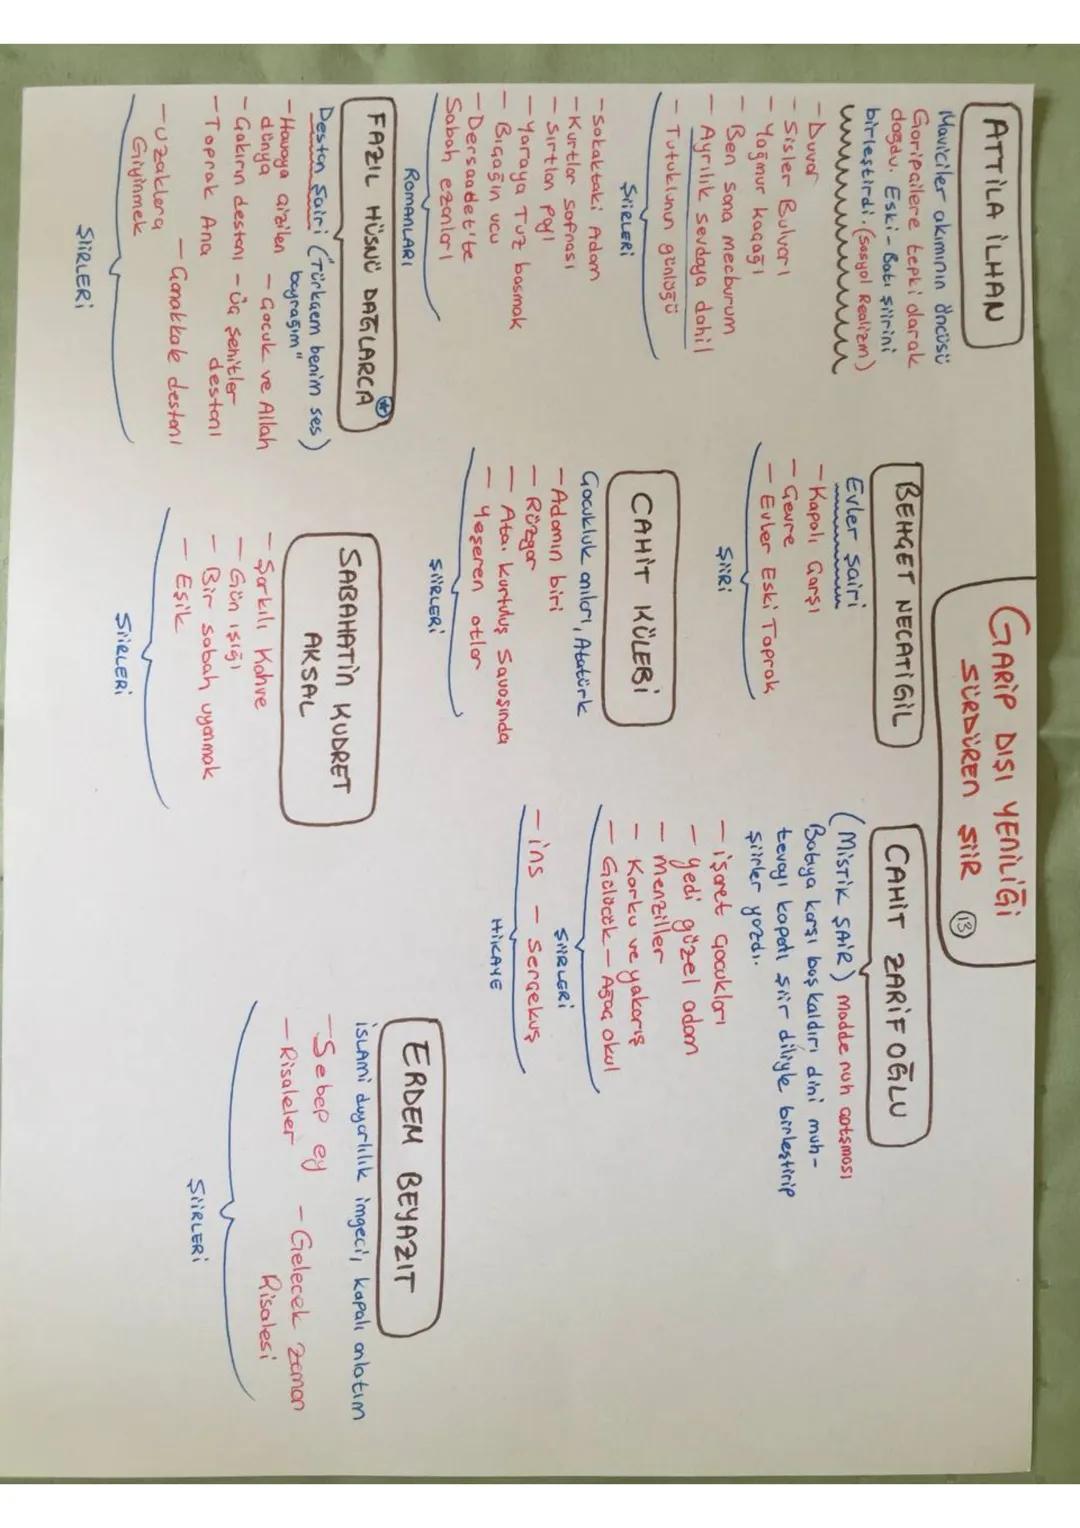 GARİP DIŞI YENİLİĞİ
SÜRDÜREN ŞİİR
13
ATTİLA İLHAN
Maviciler akımının öncüsü
Garipçilere tepki olarak
doğdu. Eski-Batı şiirini
birleştirdi. (Sosyal Realizm)
- Duvar
- Sisler Bulvarı
- Yağmur kaçağı
- Ben sana mecburum
- Ayrılık sevdaya dahil
- Tutuklunun günlüğü
ŞİİRLERİ
- Sokaktaki Adam
- Kurtlar sofrası
- Sırtlan payı
- Yaraya Tuz basmak
- Bıçağın ucu
- Dersaadet'te
Sabah ezanları
ROMANLARI
FAZIL HÜSNÜ DAĞLARCA
Destan Şairi ("Türkçem benim ses
bayrağım")
- Havaya çizilen - Çocuk ve Allah
dünya
- Çakırın destanı - Üç şehitler
destanı
- Toprak Ana
- Çanakkale destanı
- Uzaklara
Giyinmek
ŞİİRLERİ
BEHÇET NECATİGİL
Evler Şairi
- Kapalı Çarşı
- Çevre
- Evler Eski Toprak
ŞİİRİ
CAHİT KÜLEBİ
Çocukluk anıları, Atatürk
- Adamın biri
- Rüzgar
- Ata. Kurtuluş Savaşında
- Yeşeren otlar
ŞİİRLERİ
SABAHATİN KUDRET
AKSAL
- Şarkılı Kahve
- Gün ışığı
- Bir sabah uyanmak
- Eşik
ŞİİRLERİ
CAHİT ZARİFOĞLU
(MİSTİK ŞAİR) Madde ruh çatışması
Batıya karşı başkaldırı dini muh-
tevayı kapalı şiir diliyle birleştirip
şiirler yazdı.
- İşaret çocukları
- Yedi güzel adam
- Menziller
- Korku ve yakarış
- Gülücük - Ağaç okul
ŞİİRLERİ
- İns - Serçekuş
HİKAYE
ERDEM BEYAZIT
İSLAMİ duyarlılık imgeci, kapalı anlatım
- Sebep ey
- Risaleler - Gelecek zaman
Risalesi
ŞİİRLERİ